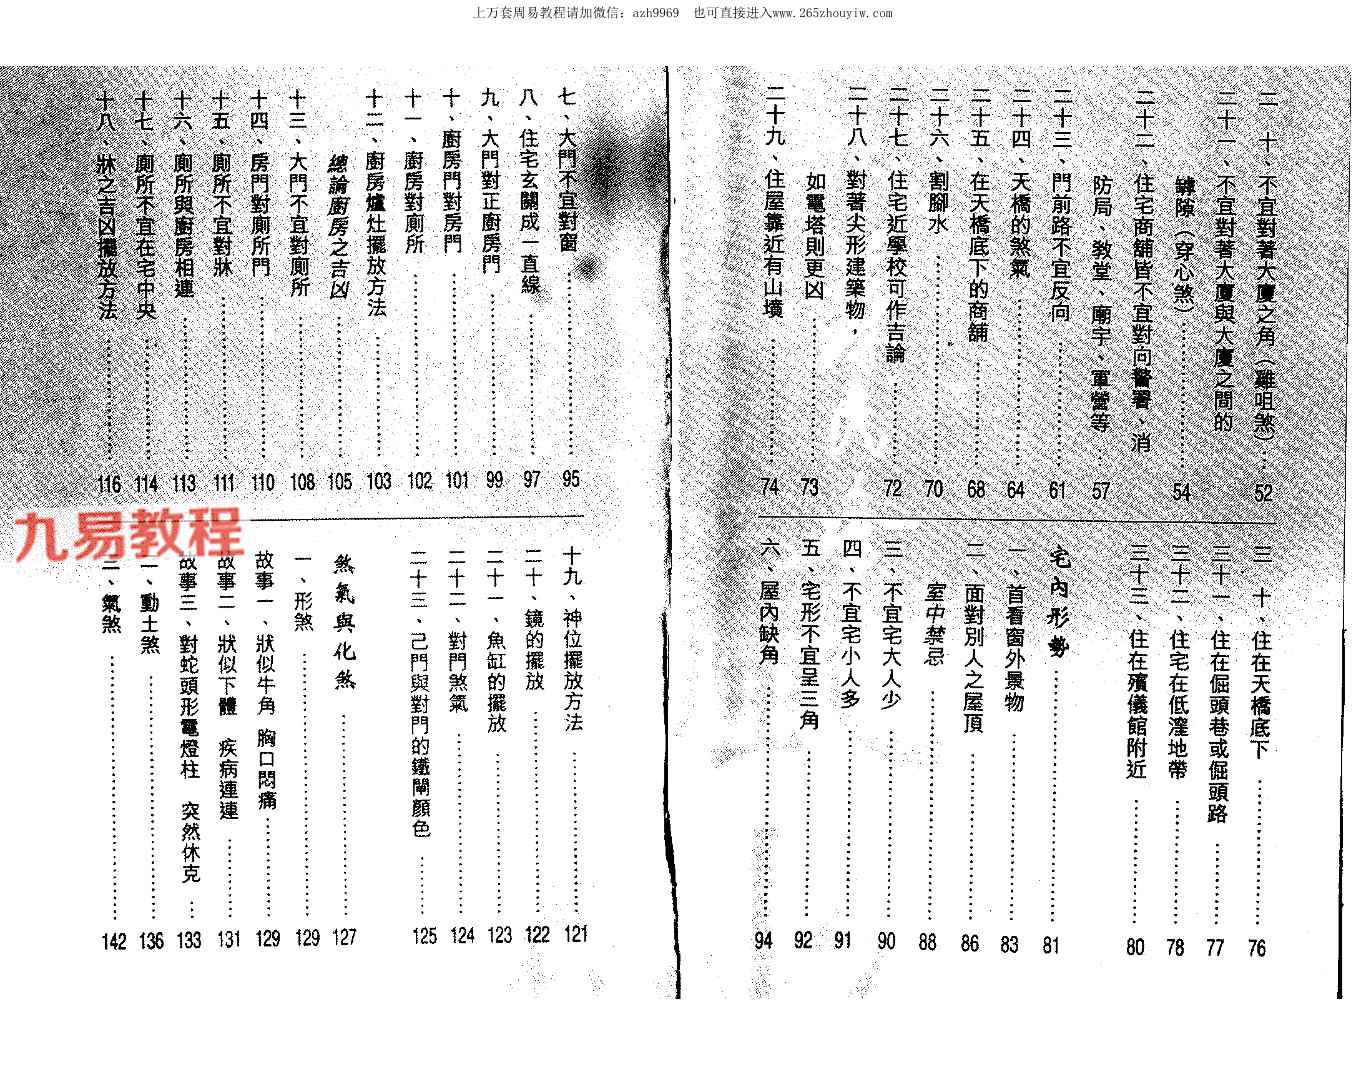 上万套周易教程请加微信：azh9969 也可直接进入www.265zhouyiw.com
二十、不宜對著大廈之角（雞咀煞）……52
二十一、不宜對著大廈與大廈之間的
罅隙（穿心煞）……54
二十二、住宅商舖皆不宜對向警署、消
防局、教堂、廟宇、軍營等……57
二十三、門前路不宜反向……61
二十四、天橋的煞氣……64
二十五、在天橋底下的商舖……68
二十六、割腳水……70
二十七、住宅近學校可作吉論……72
二十八、對著尖形建築物，
如電塔則更凶……73
二十九、住屋靠近有山墳……74
三十、住在天橋底下……76
三十一、住在倔頭巷或倔頭路……77
三十二、住宅在低漥地帶……78
三十三、住在殯儀館附近……80
宅內形勢……81
一、首看窗外景物……83
二、面對別人之屋頂……86
室中禁忌……88
三、不宜宅大人少……90
四、不宜宅小人多……91
五、宅形不宜呈三角……92
六、屋內缺角……94
七、大門不宜對窗……95
八、住宅玄關成一直線……97
九、大門對正廚房門……99
十、廚房門對房門……101
十一、廚房對廁所……102
十二、廚房爐灶擺放方法……103
總論廚房之吉凶……105
十三、大門不宜對廁所……108
十四、房門對廁所門……110
十五、廁所不宜對牀……111
十六、廁所與廚房相連……113
十七、廁所不宜在宅中央……114
十八、牀之吉凶擺放方法……116
十九、神位擺放方法……121
二十、鏡的擺放……122
二十一、魚缸的擺放……123
二十二、對門煞氣……124
二十三、己門與對門的鐵閘顏色……125
煞氣與化煞……127
一、形煞……129
故事一、狀似牛角 胸口悶痛……129
故事二、狀似下體 疾病連連……131
故事三、對蛇頭形電燈柱 突然休克…133
二、動土煞……136
三、氣煞……142
九易教程